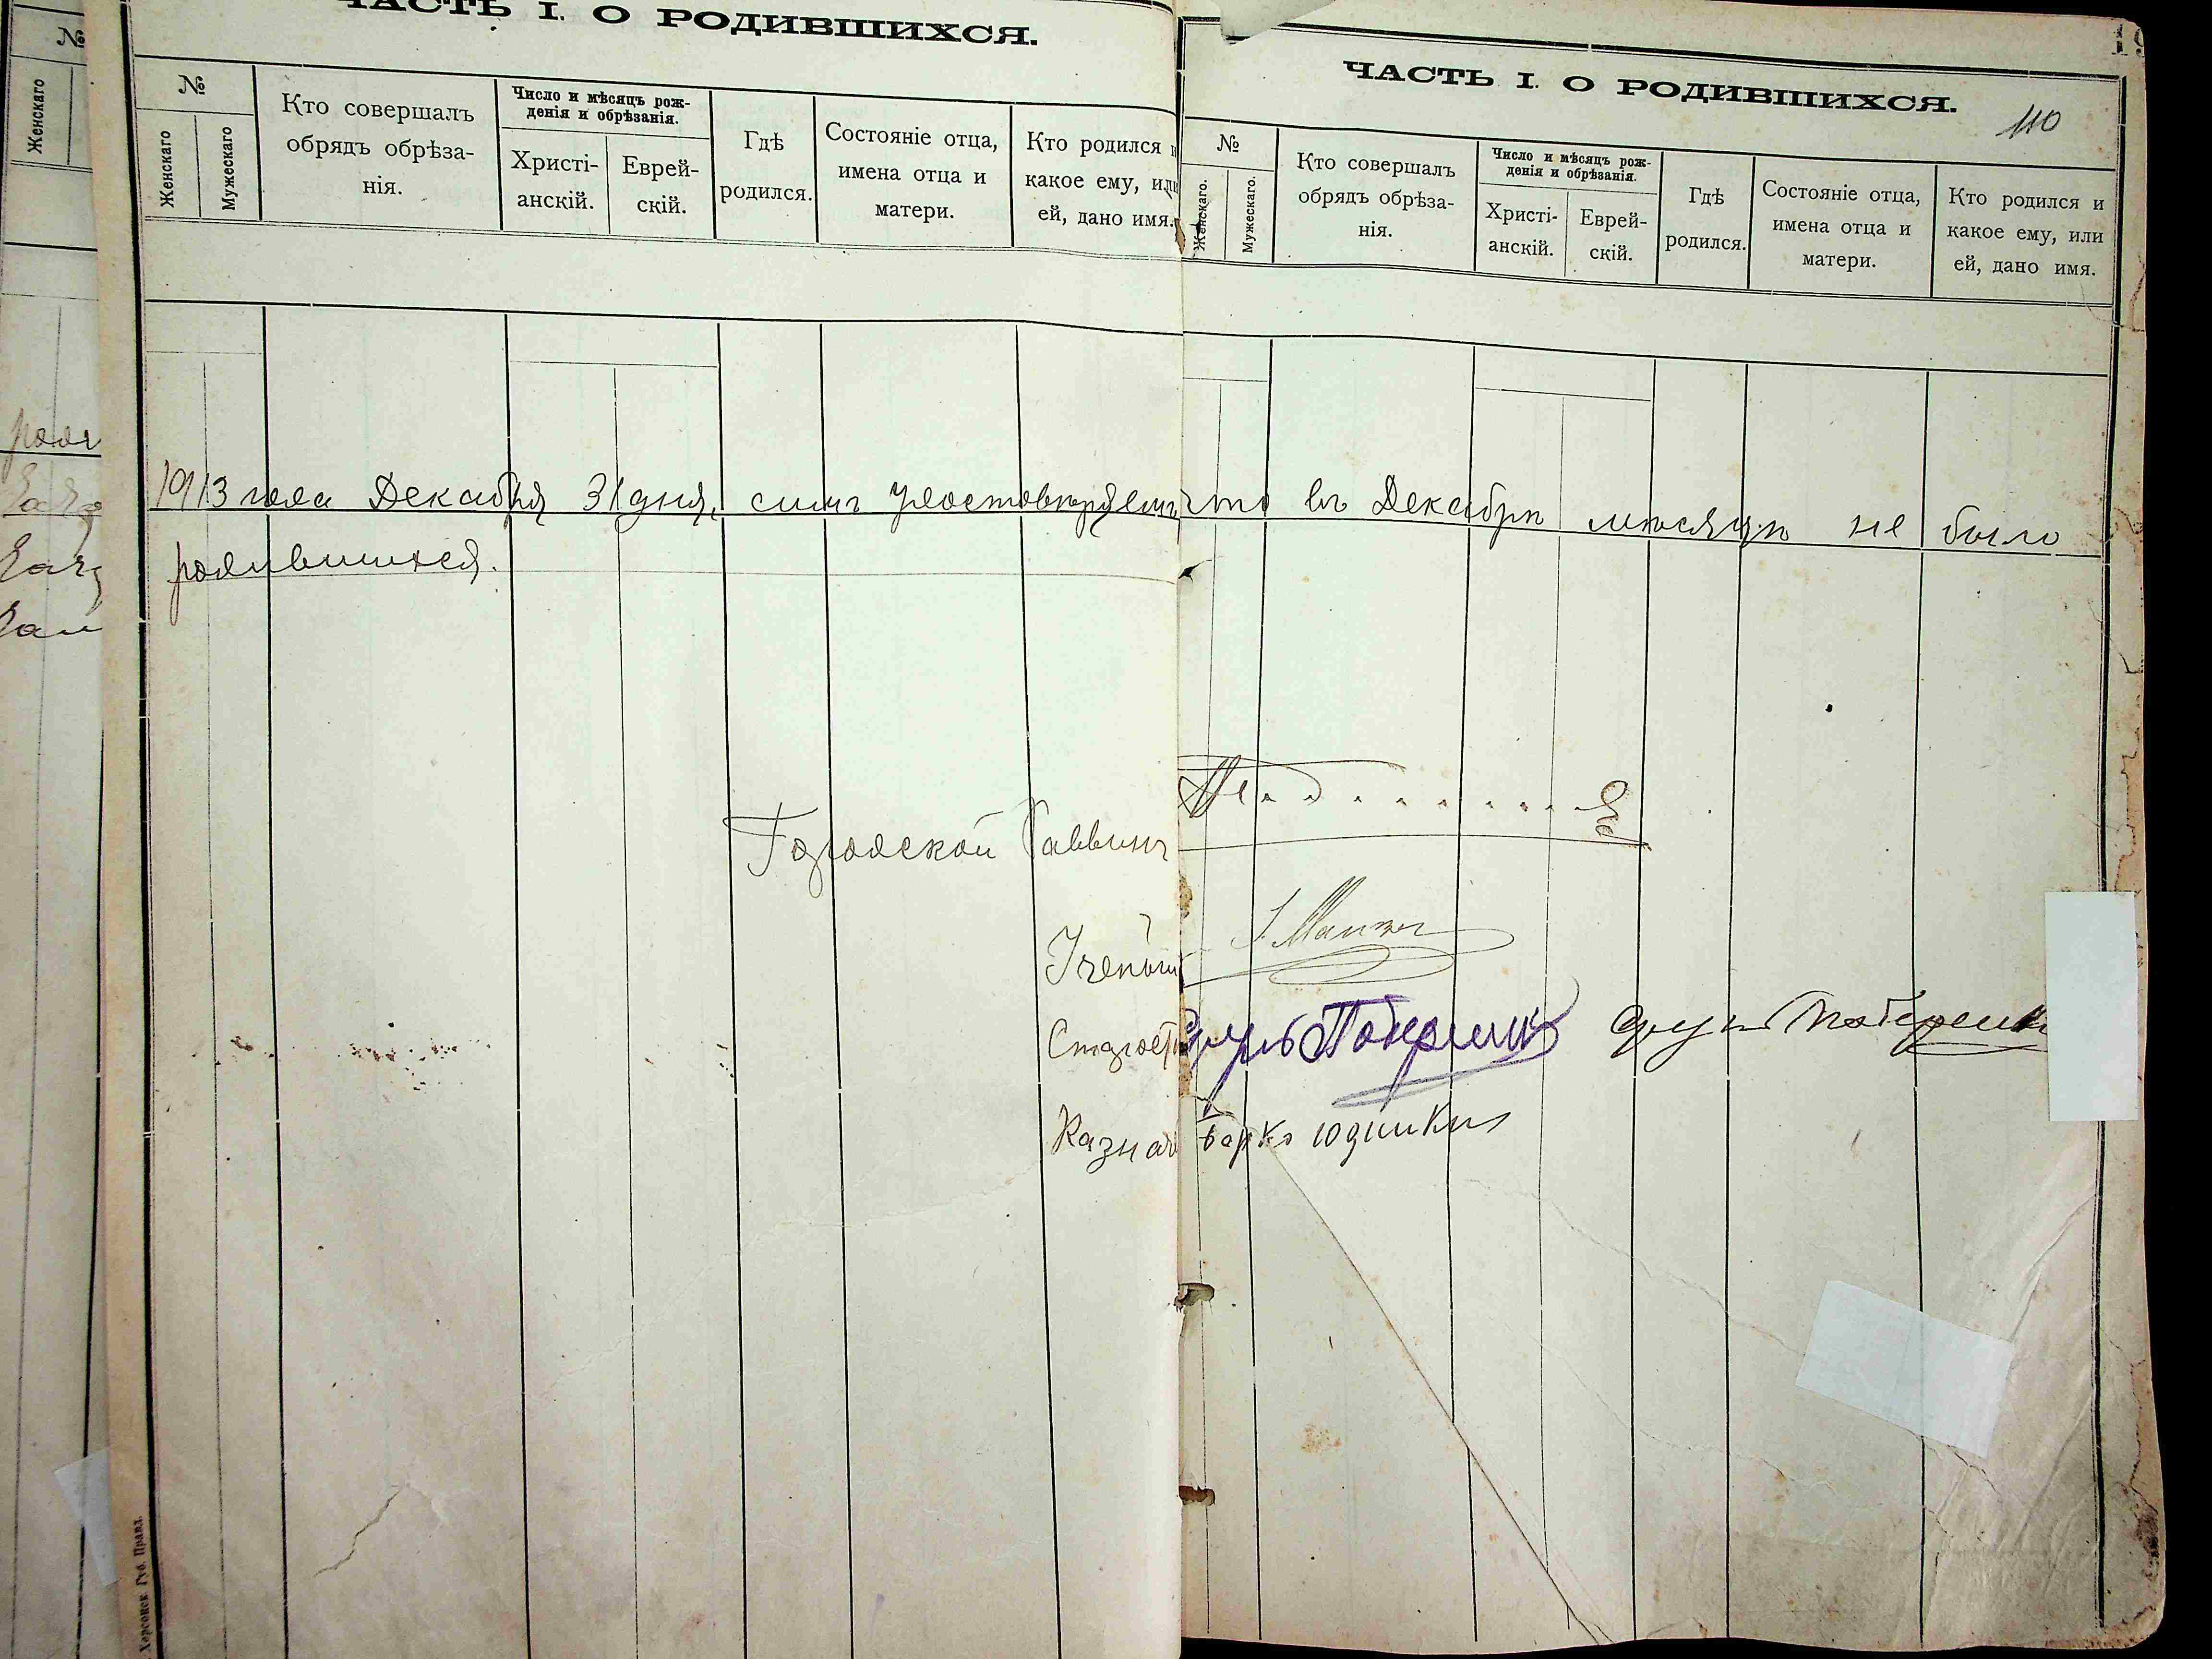 №
Женскаго
ЧАСТЬ I. О РОДИВШИХСЯ.
№
Женскаго
Мужескаго
Кто совершалъ
обрядъ обрѣза-
нія.
Число и мѣсяцъ рож-
денія и обрѣзанія.
Христі-
анскій.
Еврей-
скій.
Гдѣ
родился.
Состояніе отца,
имена отца и
матери.
Кто родился и
какое ему, или
ей, дано имя.
ЧАСТЬ I. О РОДИВШИХСЯ.
110
№
Женскаго.
Мужескаго.
Кто совершалъ
обрядъ обрѣза-
нія.
Число и мѣсяцъ рож-
денія и обрѣзанія.
Христі-
анскій.
Еврей-
скій.
Гдѣ
родился.
Состояніе отца,
имена отца и
матери.
Кто родился и
какое ему, или
ей, дано имя.
1913 года Декабря 31 дня, симъ удостовѣряемъ что въ Декабрѣ мѣсяцѣ не было
родившихся.
Городской Раввинъ
Ученый
Старост
Казнач Юдинки
Херсонск Губ. Правл.